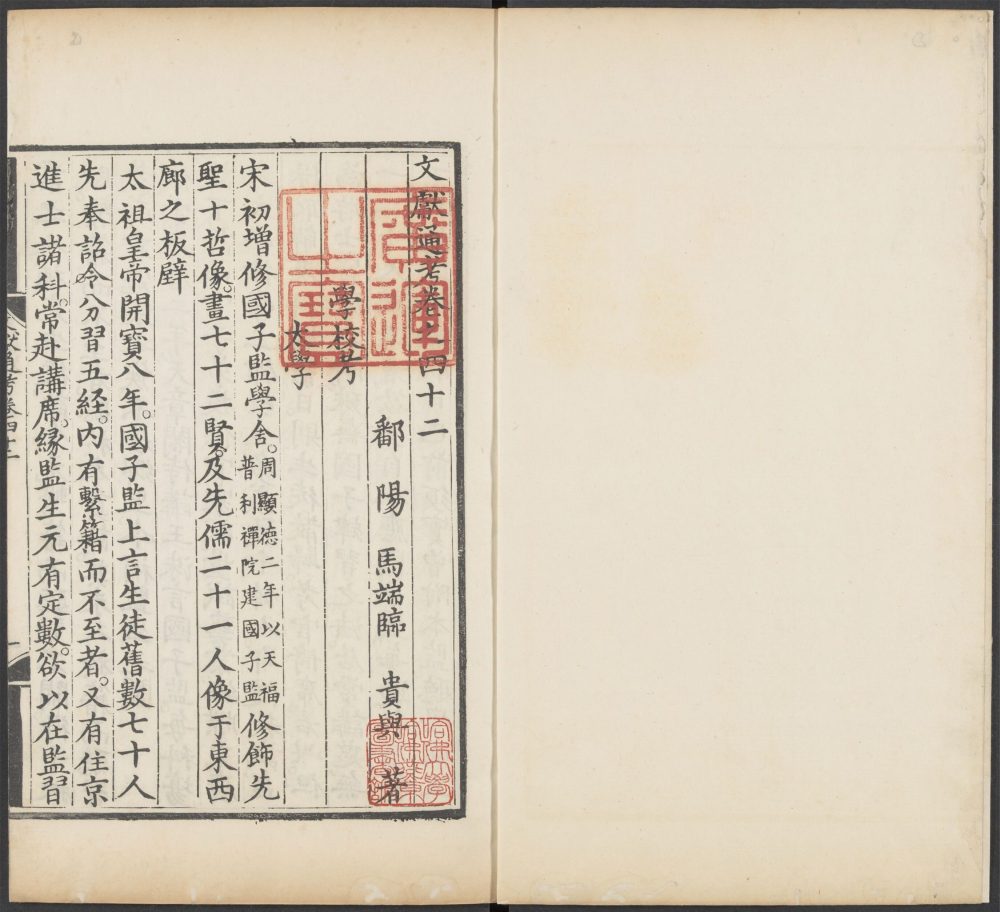 文獻通考卷之四十二
鄱陽馬端臨貴與著
學校考
太學
宋初增修國子監學舍。周顯德二年以天福普利禪院建國子監修飾先
聖十哲像。畫七十二賢。及先儒二十一人像于東西
廊之板壁
太祖皇帝開寶八年。國子監上言生徒舊數七十人
先奉詔令分習五経。内有繫籍而不至者。又有住京
進士諸科。常赴講席。緣監生元有定數。欲以在監習
文獻通考卷四十二
一
哈佛大學哈佛燕京圖書館